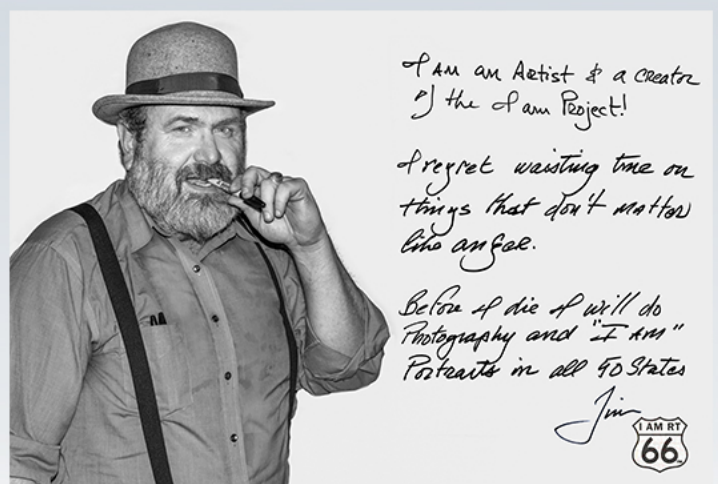 I AM an Artist & a creator
of the I am Project!
I regret waisting time on
things that don't matter
like anger.
Before I die I will do
Photography and "I AM"
Portraits in all 50 States
Jim
I AM RT
66